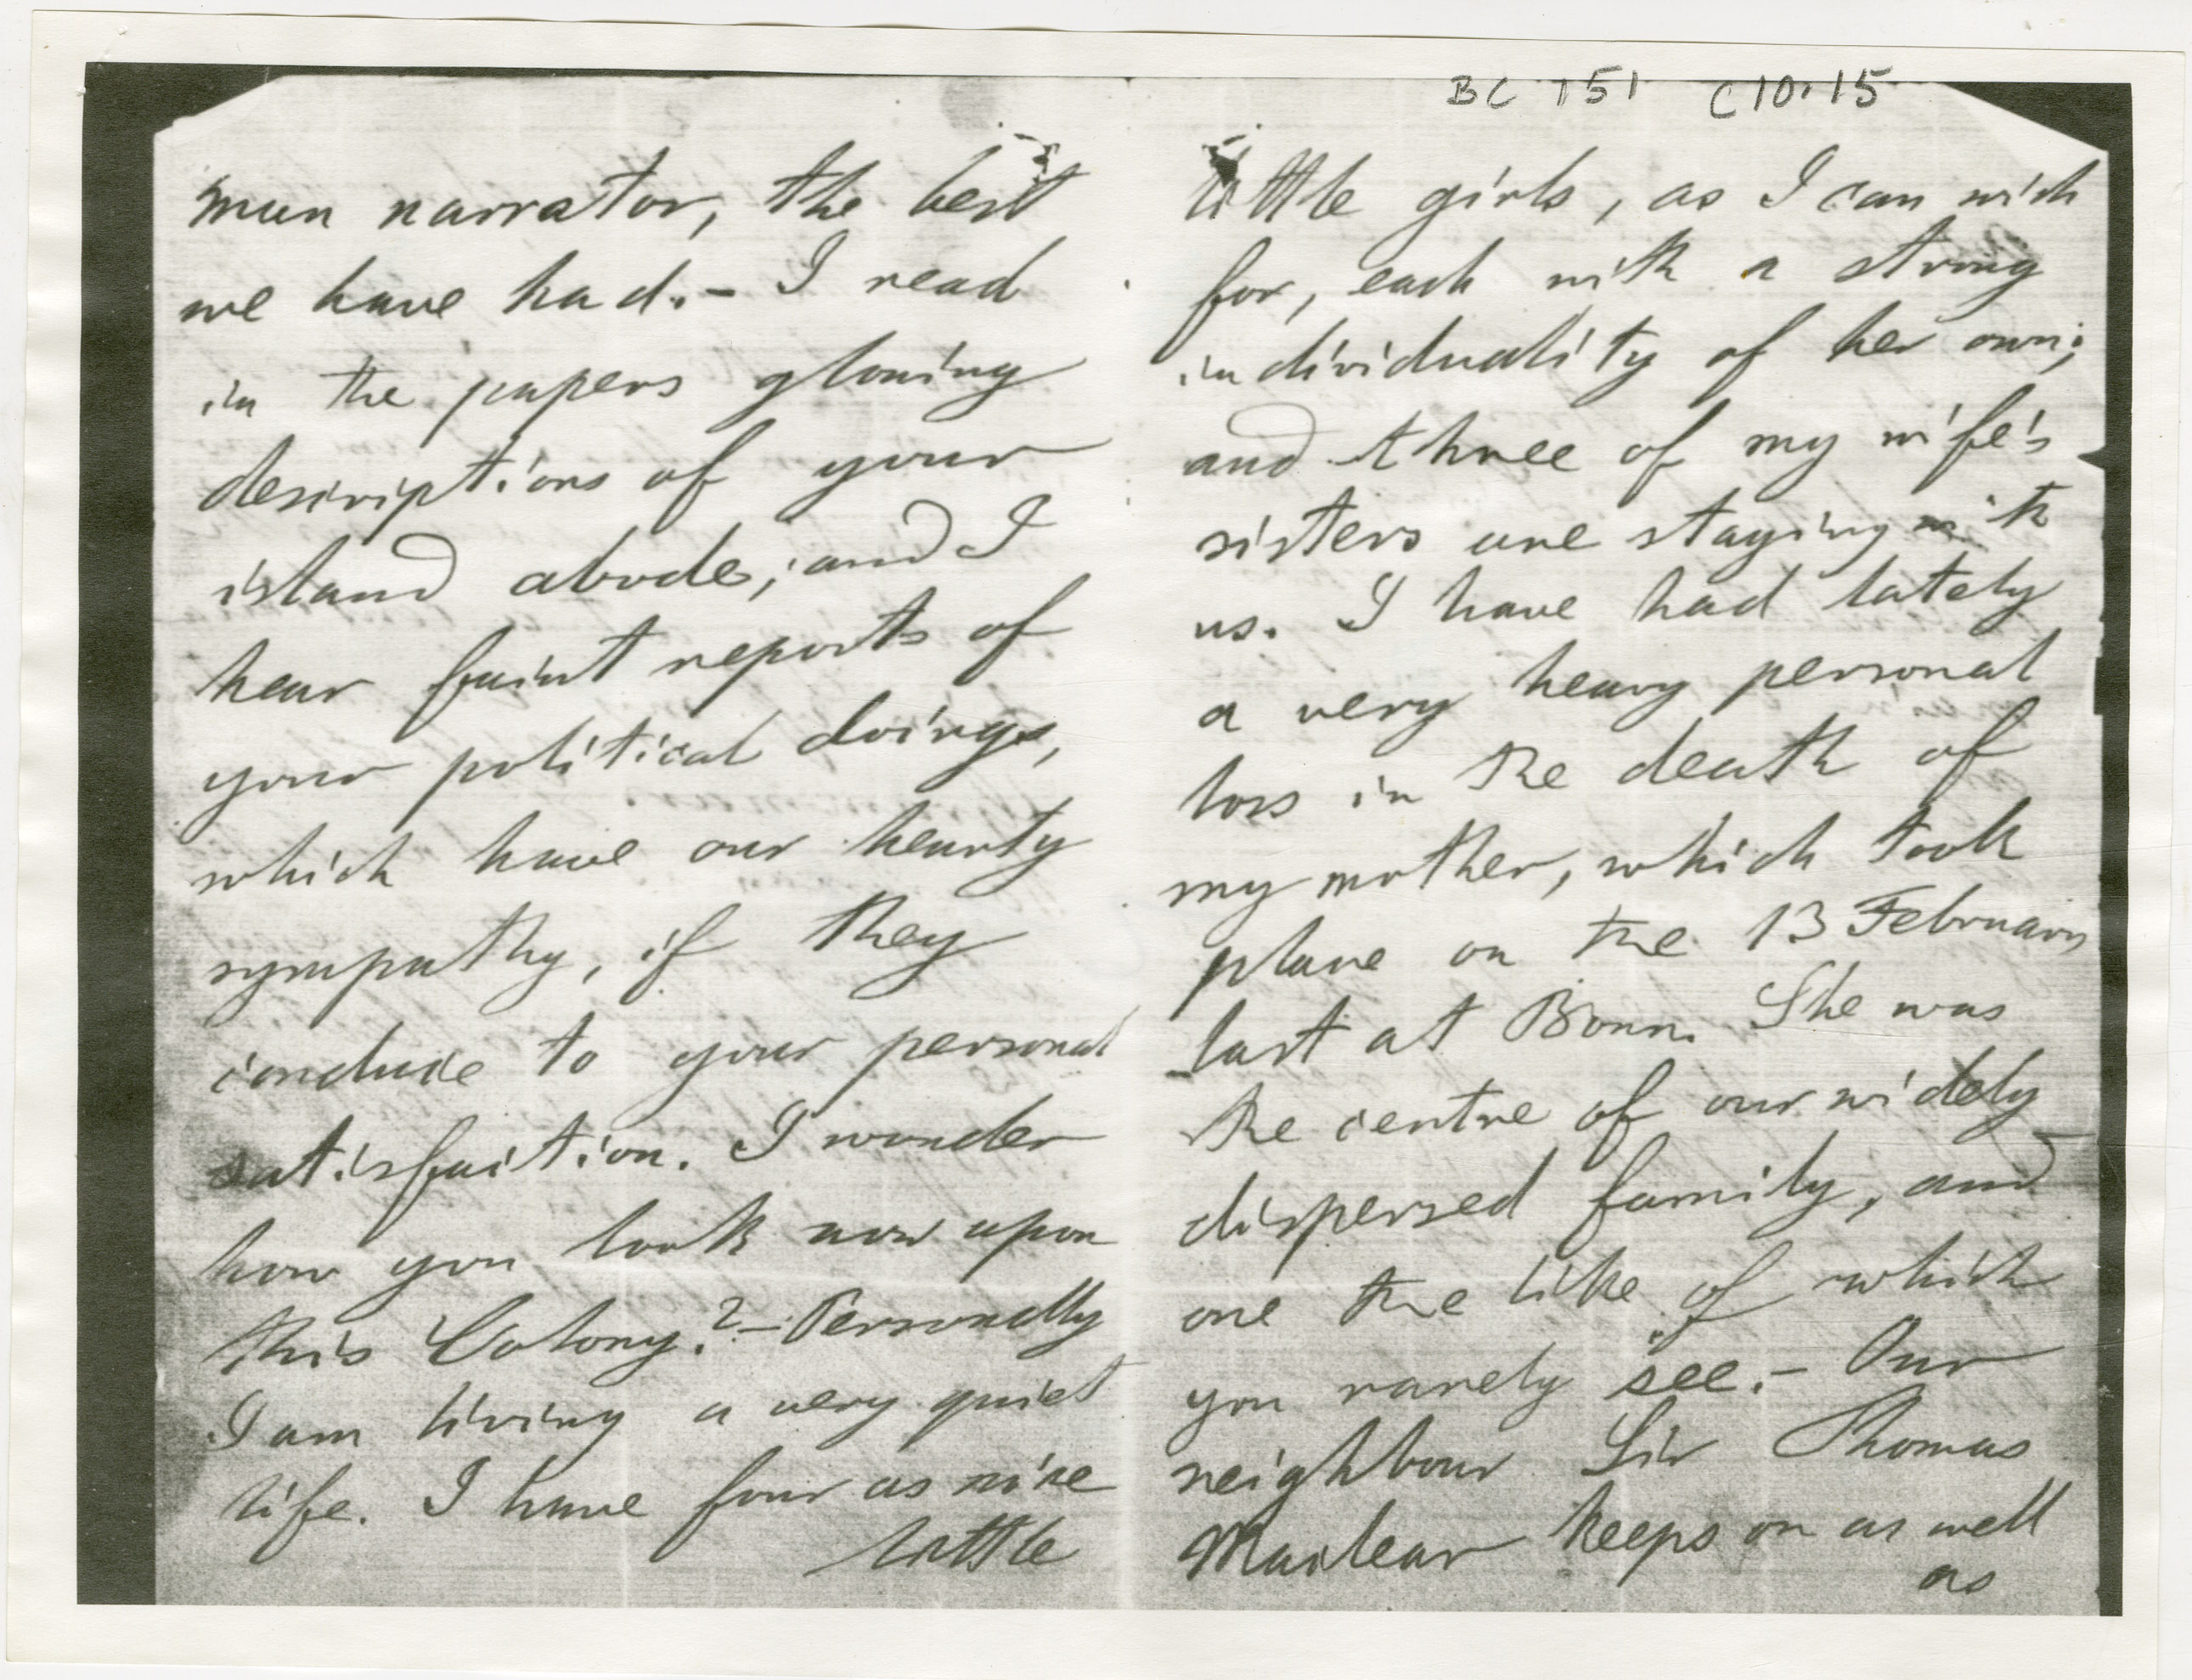 BC 151 C10.15
man narrator, the best
we have had. - I read
in the papers glowing
descriptions of your
island abode; and I
hear faint reports of
your political doings,
which have our hearty
sympathy, if they
conduce to your personal
satisfaction. I wonder
how you look now upon
this Colony? - Personally
I am living a very quiet
life. I have four as nice
little
little girls, as I can wish
for, each with a strong
individuality of her own;
and three of my wife's
sisters are staying with
us. I have had lately
a very heavy personal
loss in the death of
my mother, which took
place on the 13 February
last at Bonn. She was
the centre of our widely
dispersed family, and
one the like of which
you rarely see. - Our
neighbour Sir Thomas
Maclear keeps on as well
as